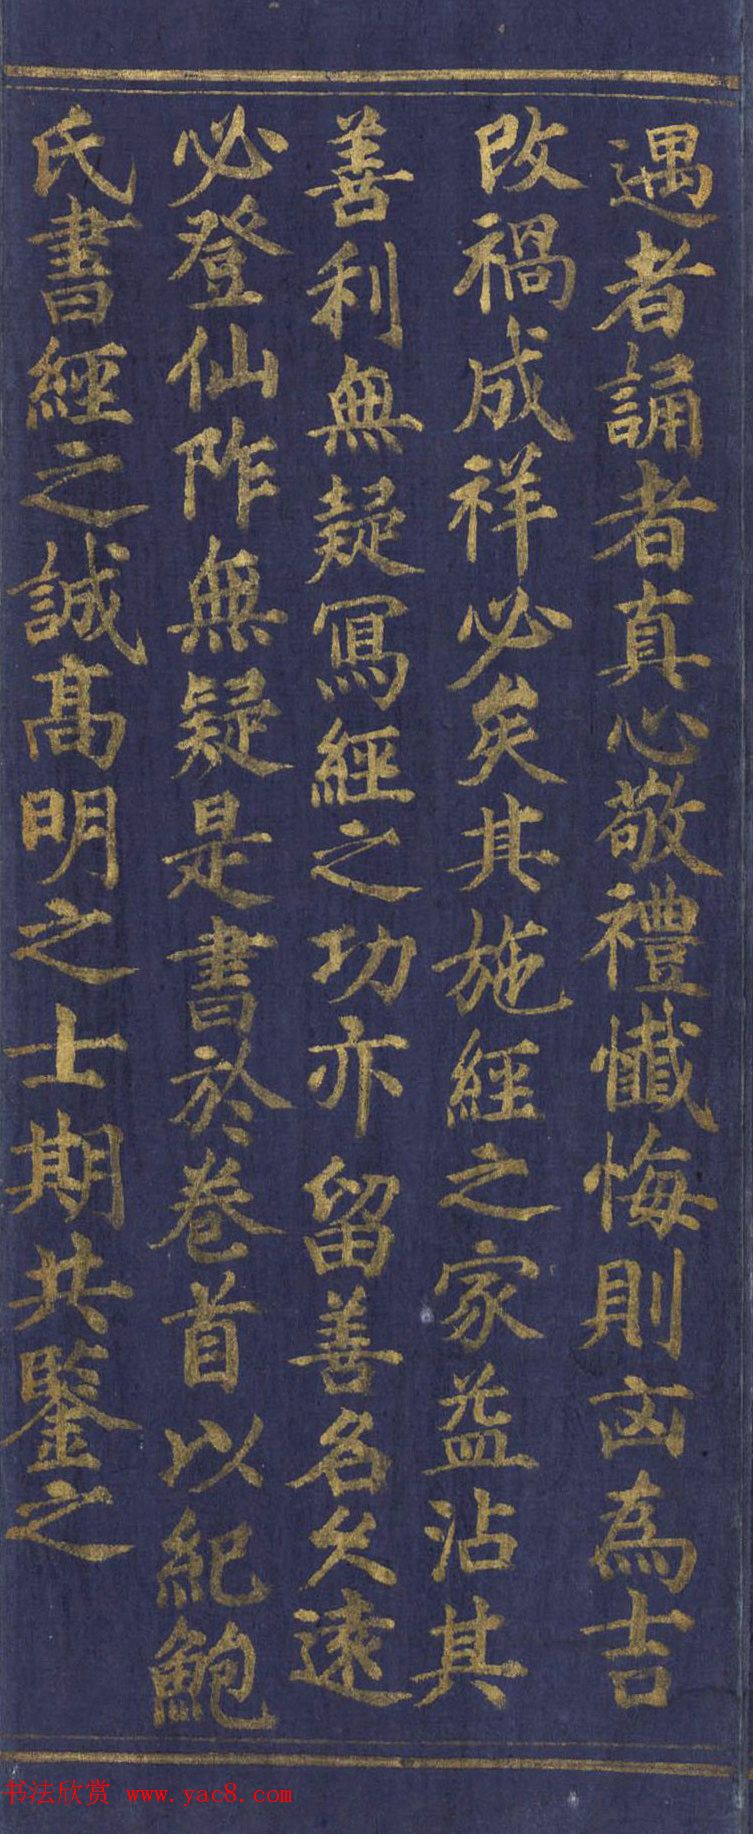 遇者誦者真心敬禮懺悔則凶為吉
改禍成祥必矣其施經之家益沾其
善利無疑寫經之功亦留善名久遠
必登仙阼無疑是書於卷首以紀鮑
氏書經之誠高明之士期共鑒之
书法欣赏 www.yac8.com